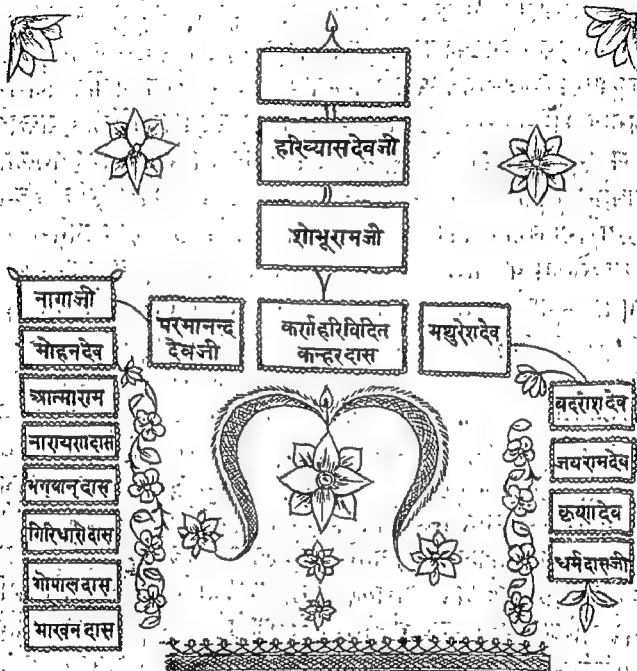 हरिव्यासदेवजी
शोभूरामजी
नागाजी
परमानन्द
देवजी
कर्णहरिविदित
कन्हरदास
मथुरेशदेव
मोहनदेव
आत्माराम
नारायणदास
भगवानदास
गिरिधारीदास
गोपालदास
माखनदास
बदरीशदेव
जयरामदेव
कृष्णदेव
धर्मदासजी